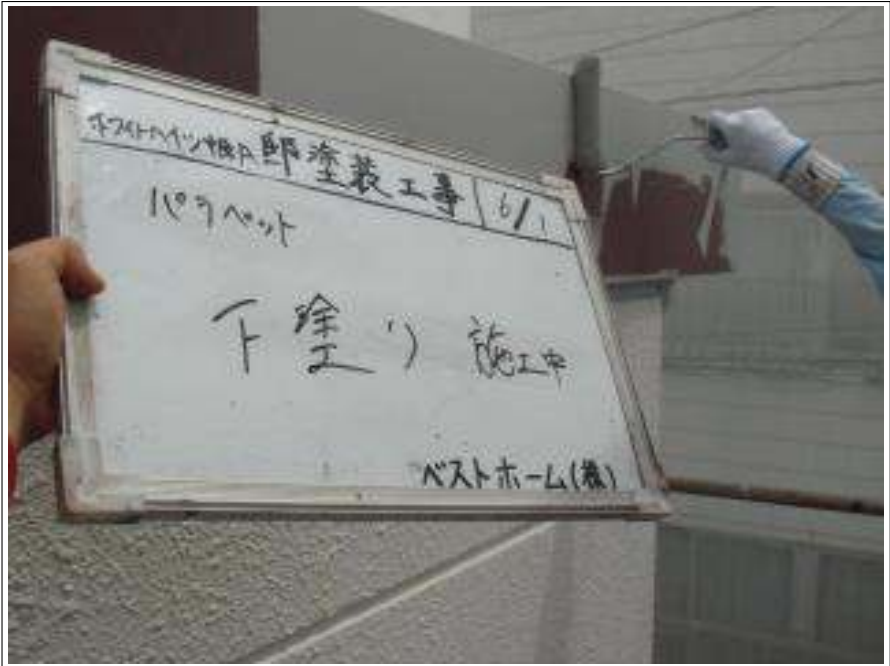 ホワイトハイツ 邸塗装工事 6/1
パラペット
下塗り 施工中
ベストホーム(株)